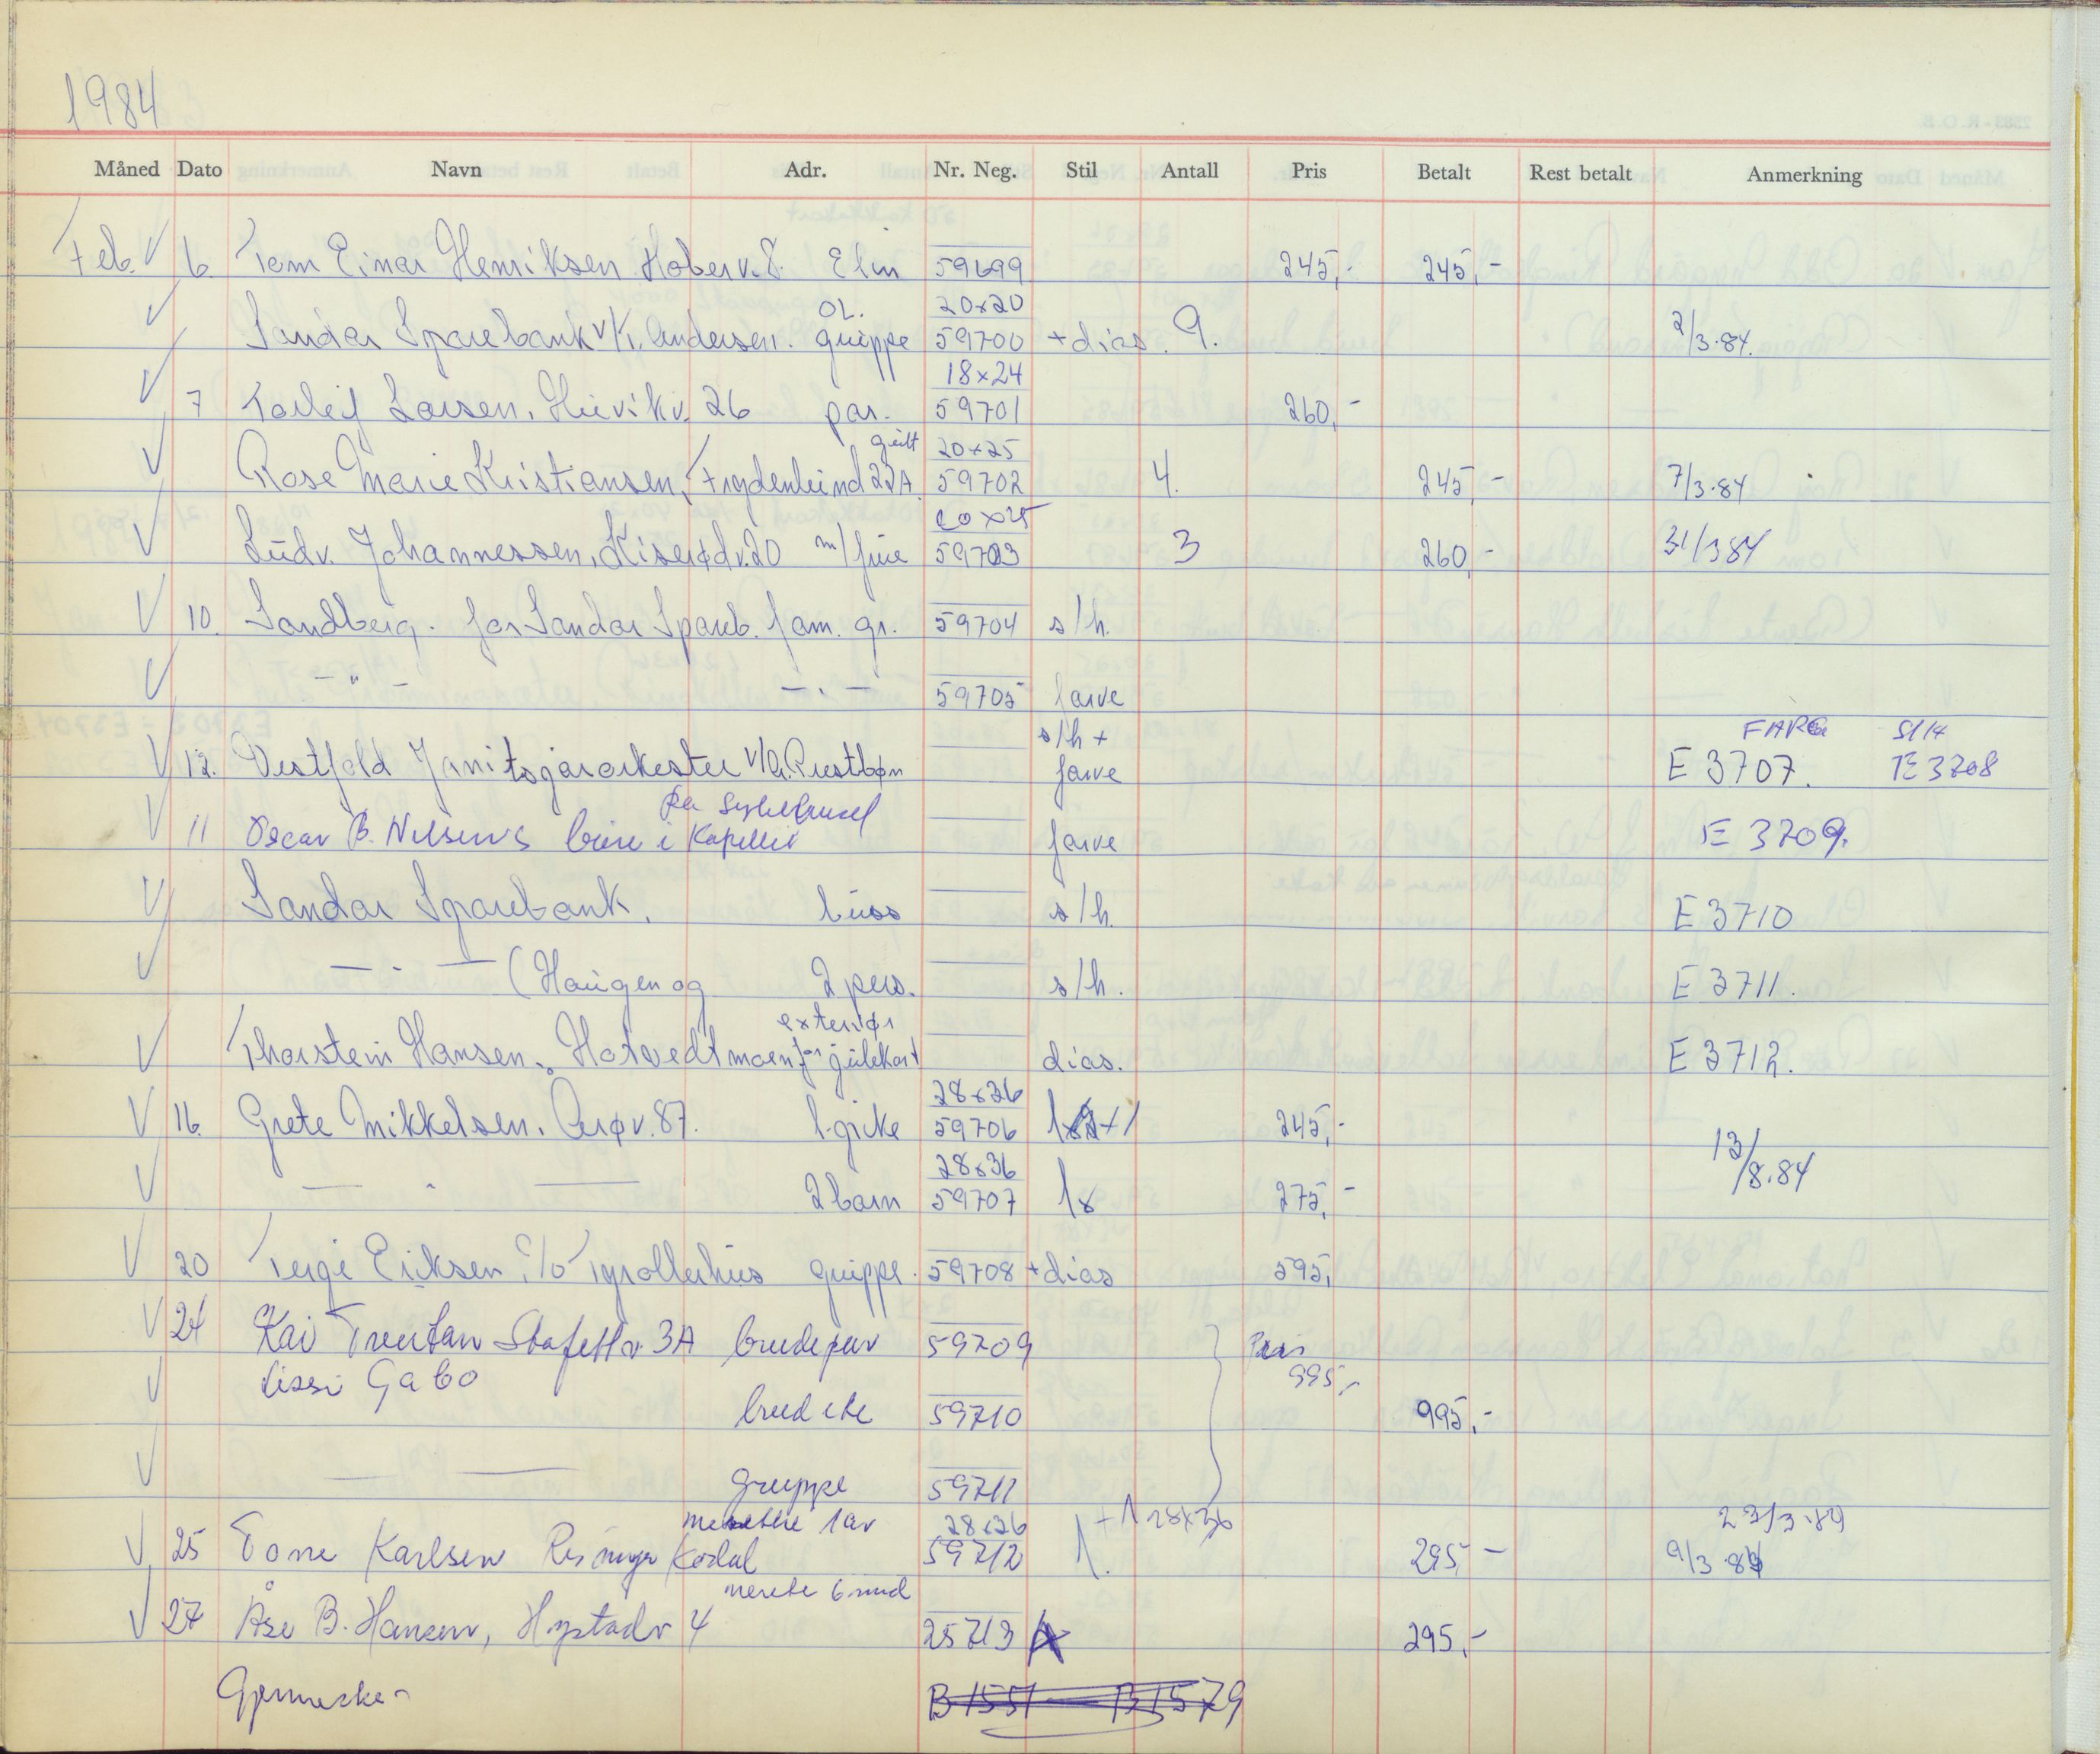 1984
Måned Dato Navn Adr. Nr. Neg. Stil Antall Pris Betalt Rest betalt Anmerkning
Feb. V 6. Tom Einar Henriksen Haberv. 8. Elin 59699 245,- 245,-
OL. 20x20
V Sandar Sparebank v/K. Andersen. gruppe 59700 + dias. 9. 2/3.84.
18x24
V 7 Torleif Larsen, 26 par. 59701 260,-
gutt 20x25
V Rose Marie Kristiansen, Frydenlund 22A. 59702 4. 245,- 7/3.84
20x25
V Ludv. Johannessen, Kiserødv. 20 m/frue 59703 3 260,- 31/3 84
V 10. Sandberg. for Sandar Spareb. fam. gr. 59704 s/h.
V - " - - " - 59705 farve
s/h + FARG S/H
V 12. Vestfold Janitsjarorkester v/A. Prestbøn farve E 3707. E 3708
fra Sykehuset
V 11 Oscar B. Nilsens båre i Kapellet farve E 3709.
V Sandar Sparebank. buss s/h. E 3710
V - " - (Haugen og 2 pers. s/h. E 3711.
exteriør
V Thorstein Hansen. Hotvedtmoen for julekort dias. E 3712.
28x36
V 16. Grete Mikkelsen. 87. l. pike 59706 245,-
28x36 13/8.84
V - " - 2 barn 59707 1x 275,-
V 20 Terje Eriksen, c/o Tyrollerhus gruppe. 59708 + dias 595,
V 24 Kai Trevtan Stafettv. 3A brudepar 59709 Pris
Lissi Gabo 995,-
V brud ene 59710 995,-
V gruppe 59711
merethe 1 år 28x36 + 1 28x36 23/3.84
V 25 Tone Karlsen Kodal 59712 1. 295,- 9/3.84
merete 6 mnd
V 27 Åse B. Hansen, Hystadv 4 25713 295,-
B 1551 — B 1579